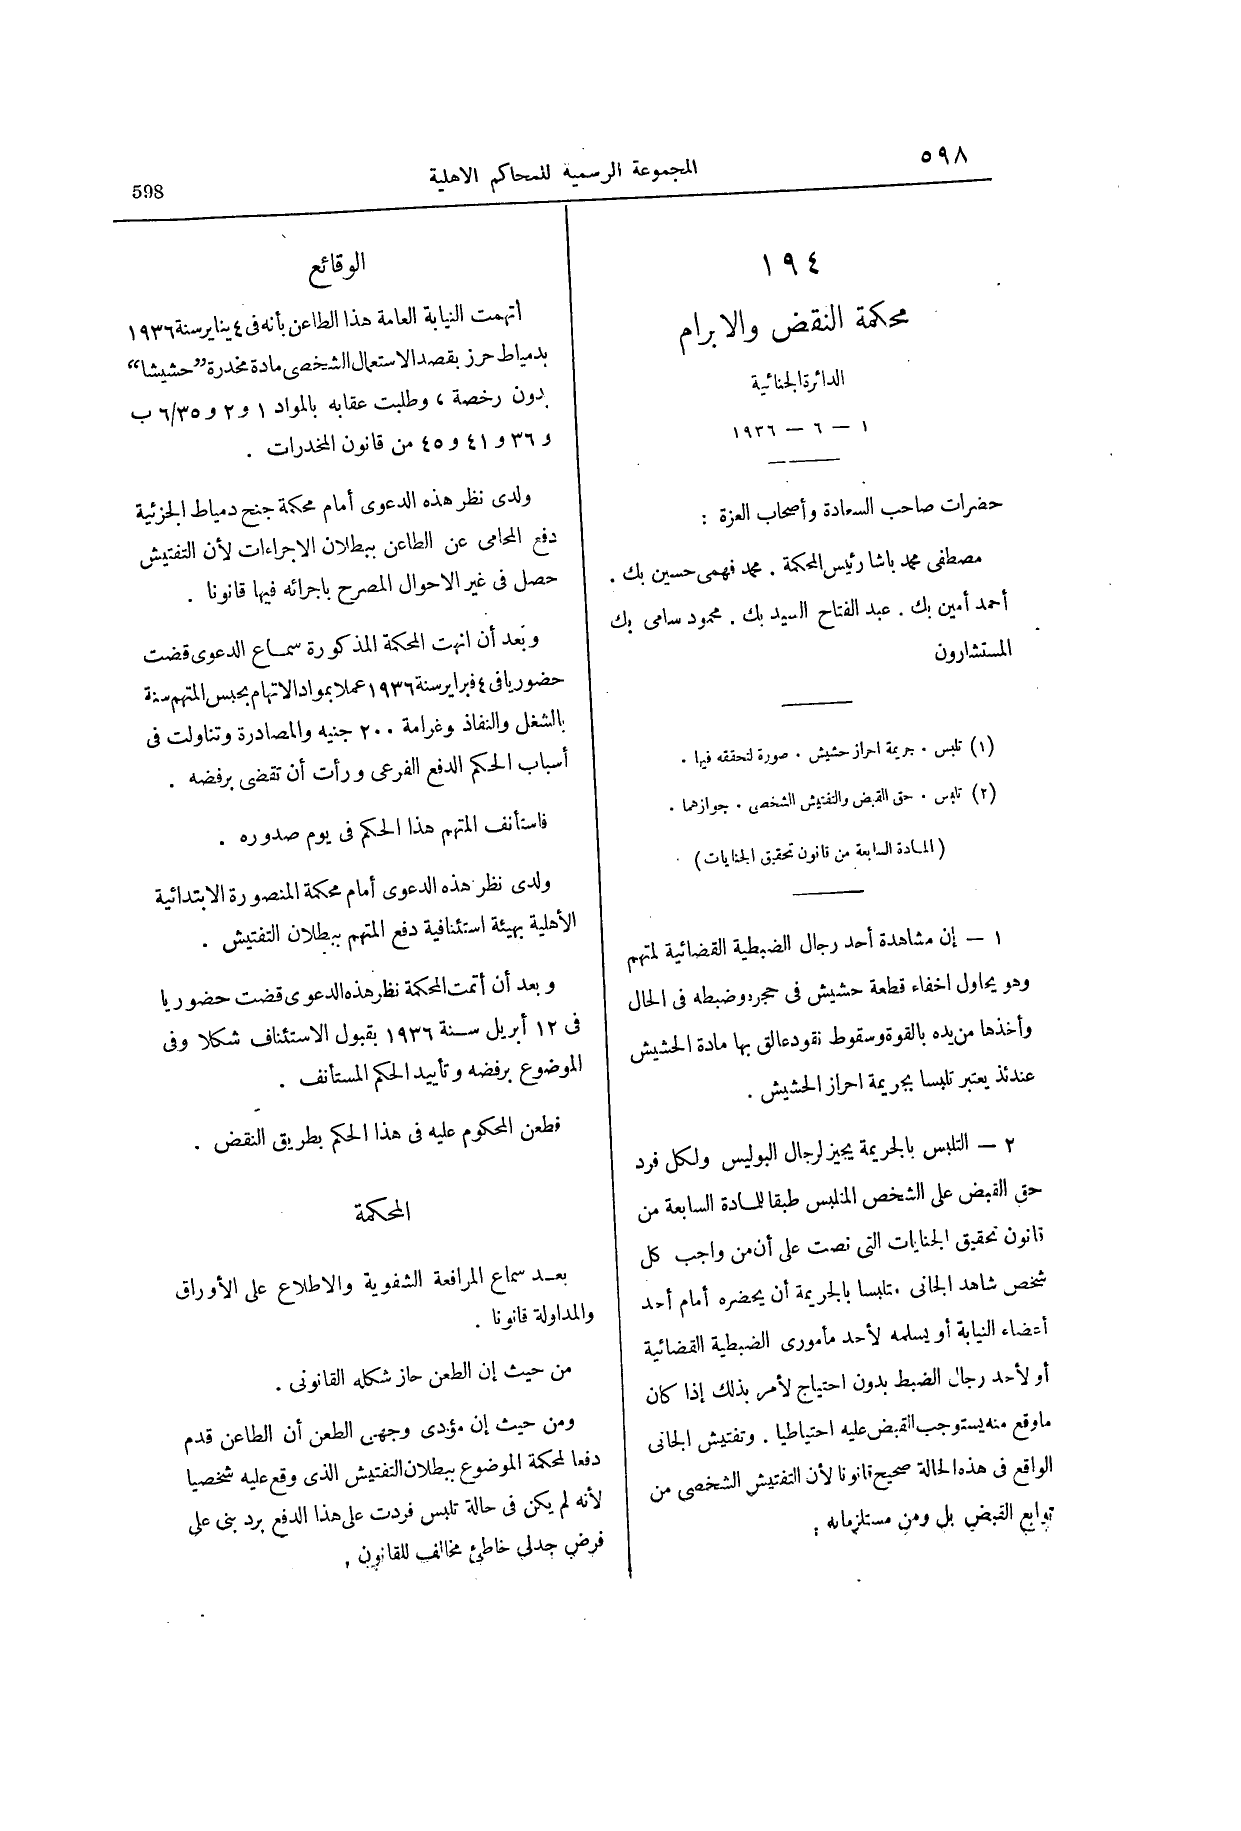 ٥٩٨
المجموعة الرسمية للمحاكم الاهلية
598
١٩٤
محكمة النقض والابرام
الدائرة الجنائية
١ — ٦ — ١٩٣٦
حضرات صاحب السعادة وأصحاب العزة :
مصطفى محمد باشا رئيس المحكمة . محمد فهمى حسين بك .
أحمد أمين بك . عبد الفتاح السيد بك . محمود سامى بك
المستشارون
(١) تلبس . جريمة احراز حشيش . صورة لتحققه فيها .
(٢) تلبس . حق القبض والتفتيش الشخصى . جوازهما .
(المادة السابعة من قانون تحقيق الجنايات)
١ — إن مشاهدة أحد رجال الضبطية القضائية لمتهم
وهو يحاول اخفاء قطعة حشيش فى حجره وضبطه فى الحال
وأخذها من يده بالقوة وسقوط نقود عالق بها مادة الحشيش
عندئذ يعتبر تلبسا بجريمة احراز الحشيش .
٢ — التلبس بالجريمة يجيز لرجال البوليس ولكل فرد
حق القبض على الشخص المتلبس طبقا للمادة السابعة من
قانون تحقيق الجنايات التى نصت على أن من واجب كل
شخص شاهد الجانى متلبسا بالجريمة أن يحضره أمام أحد
أعضاء النيابة أو يسلمه لأحد مأمورى الضبطية القضائية
أو لأحد رجال الضبط بدون احتياج لأمر بذلك إذا كان
ماوقع منه يستوجب القبض عليه احتياطيا . وتفتيش الجانى
الواقع فى هذه الحالة صحيح قانونا لأن التفتيش الشخصى من
توابع القبض بل ومن مستلزماته .
الوقائع
اتهمت النيابة العامة هذا الطاعن بأنه فى ٤ يناير سنة ١٩٣٦
بدمياط حرز بقصد الاستعمال الشخصى مادة مخدرة ”حشيشا“
بدون رخصة ، وطلبت عقابه بالمواد ١ و ٢ و ٦/٣٥ ب
و ٣٦ و ٤١ و ٤٥ من قانون المخدرات .
ولدى نظر هذه الدعوى أمام محكمة جنح دمياط الجزئية
دفع المحامى عن الطاعن ببطلان الاجراءات لأن التفتيش
حصل فى غير الاحوال المصرح باجرائه فيها قانونا .
وبعد أن انهت المحكمة المذكورة سماع الدعوى قضت
حضوريا فى ٤ فبراير سنة ١٩٣٦ عملا بمواد الاتهام بحبس المتهم سنة
بالشغل والنفاذ وغرامة ٢٠٠ جنيه والمصادرة وتناولت فى
أسباب الحكم الدفع الفرعى ورأت أن تقضى برفضه .
فاستأنف المتهم هذا الحكم فى يوم صدوره .
ولدى نظر هذه الدعوى أمام محكمة المنصورة الابتدائية
الأهلية بهيئة استئنافية دفع المتهم ببطلان التفتيش .
وبعد أن أتمت المحكمة نظر هذه الدعوى قضت حضوريا
فى ١٢ أبريل سنة ١٩٣٦ بقبول الاستئناف شكلا وفى
الموضوع برفضه وتأييد الحكم المستأنف .
فطعن المحكوم عليه فى هذا الحكم بطريق النقض .
المحكمة
بعد سماع المرافعة الشفوية والاطلاع على الأوراق
والمداولة قانونا .
من حيث إن الطعن حاز شكله القانونى .
ومن حيث إن مؤدى وجهى الطعن أن الطاعن قدم
دفعا لمحكمة الموضوع ببطلان التفتيش الذى وقع عليه شخصيا
لأنه لم يكن فى حالة تلبس فردت على هذا الدفع برد بنى على
فرض جدلى خاطئ مخالف للقانون .